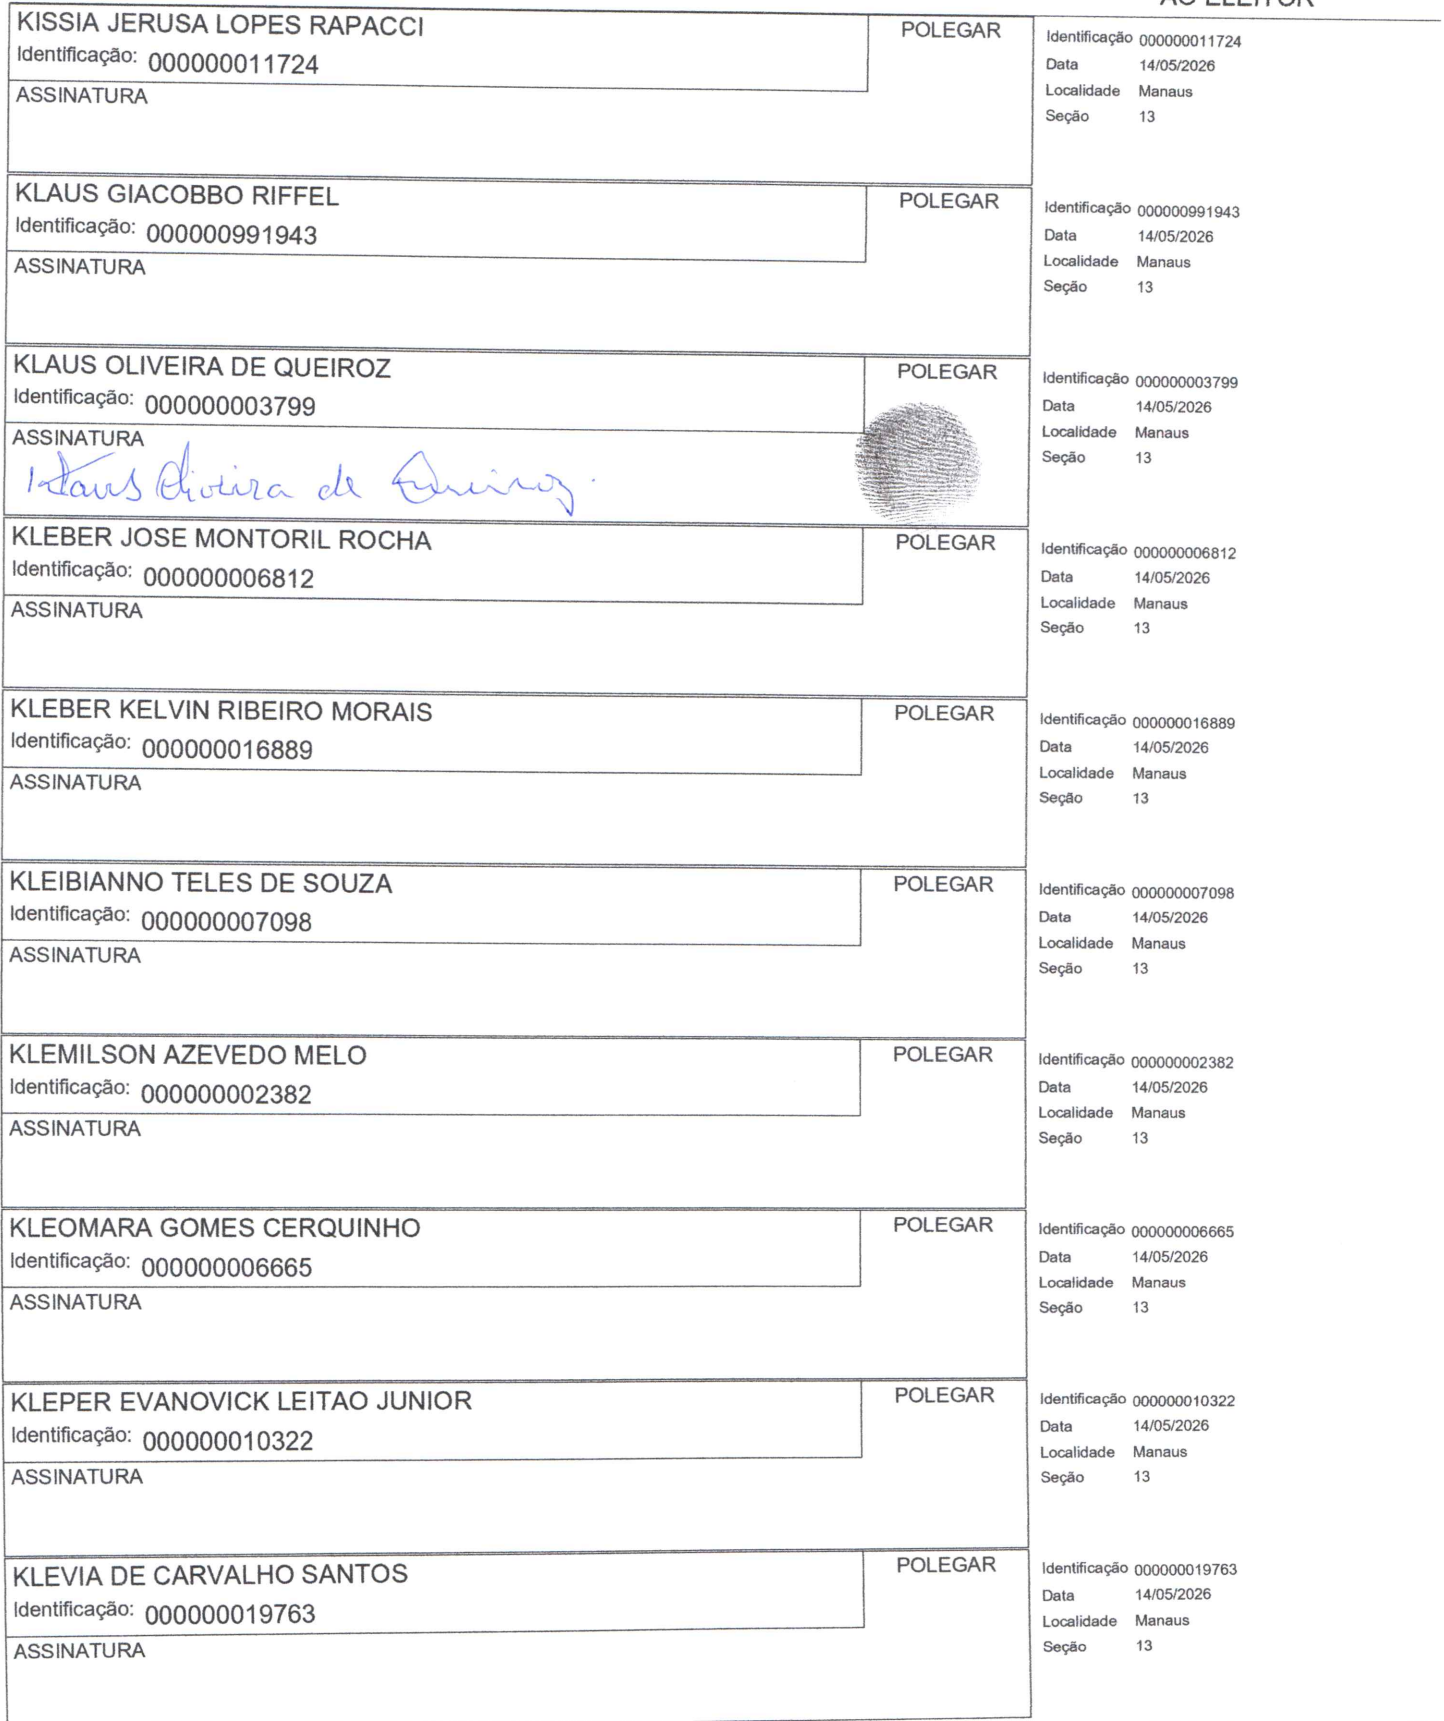 AO ELEITOR
KISSIA JERUSA LOPES RAPACCI
POLEGAR
Identificação: 000000011724
ASSINATURA
Identificação 000000011724
Data 14/05/2026
Localidade Manaus
Seção 13
KLAUS GIACOBBO RIFFEL
POLEGAR
Identificação: 000000991943
ASSINATURA
Identificação 000000991943
Data 14/05/2026
Localidade Manaus
Seção 13
KLAUS OLIVEIRA DE QUEIROZ
POLEGAR
Identificação: 000000003799
ASSINATURA
Klaus Oliveira de Queiroz.
Identificação 000000003799
Data 14/05/2026
Localidade Manaus
Seção 13
KLEBER JOSE MONTORIL ROCHA
POLEGAR
Identificação: 000000006812
ASSINATURA
Identificação 000000006812
Data 14/05/2026
Localidade Manaus
Seção 13
KLEBER KELVIN RIBEIRO MORAIS
POLEGAR
Identificação: 000000016889
ASSINATURA
Identificação 000000016889
Data 14/05/2026
Localidade Manaus
Seção 13
KLEIBIANNO TELES DE SOUZA
POLEGAR
Identificação: 000000007098
ASSINATURA
Identificação 000000007098
Data 14/05/2026
Localidade Manaus
Seção 13
KLEMILSON AZEVEDO MELO
POLEGAR
Identificação: 000000002382
ASSINATURA
Identificação 000000002382
Data 14/05/2026
Localidade Manaus
Seção 13
KLEOMARA GOMES CERQUINHO
POLEGAR
Identificação: 000000006665
ASSINATURA
Identificação 000000006665
Data 14/05/2026
Localidade Manaus
Seção 13
KLEPER EVANOVICK LEITAO JUNIOR
POLEGAR
Identificação: 000000010322
ASSINATURA
Identificação 000000010322
Data 14/05/2026
Localidade Manaus
Seção 13
KLEVIA DE CARVALHO SANTOS
POLEGAR
Identificação: 000000019763
ASSINATURA
Identificação 000000019763
Data 14/05/2026
Localidade Manaus
Seção 13